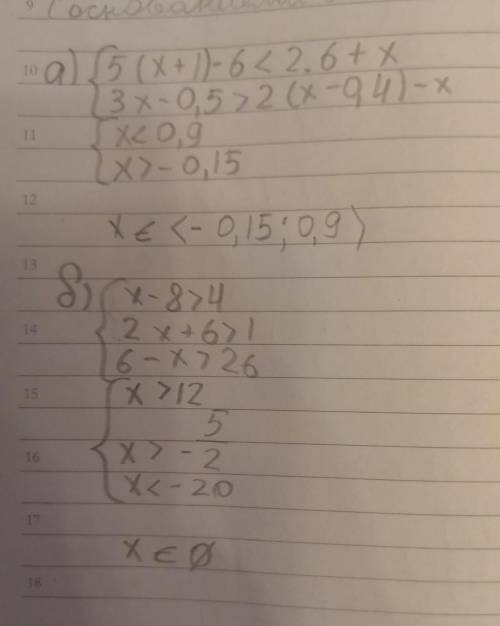 9
10 а) { 5 (x+1) - 6 < 2.6 + x
3x - 0,5 > 2 (x - 0,4) - x
11 { x < 0,9
x > - 0,15
12
x ∈ < - 0,15 ; 0,9 )
13
б) { x - 8 > 4
14 2 x + 6 > 1
6 - x > 26
15 { x > 12
16 x > - 5/2
x < - 20
17
x ∈ ∅
18